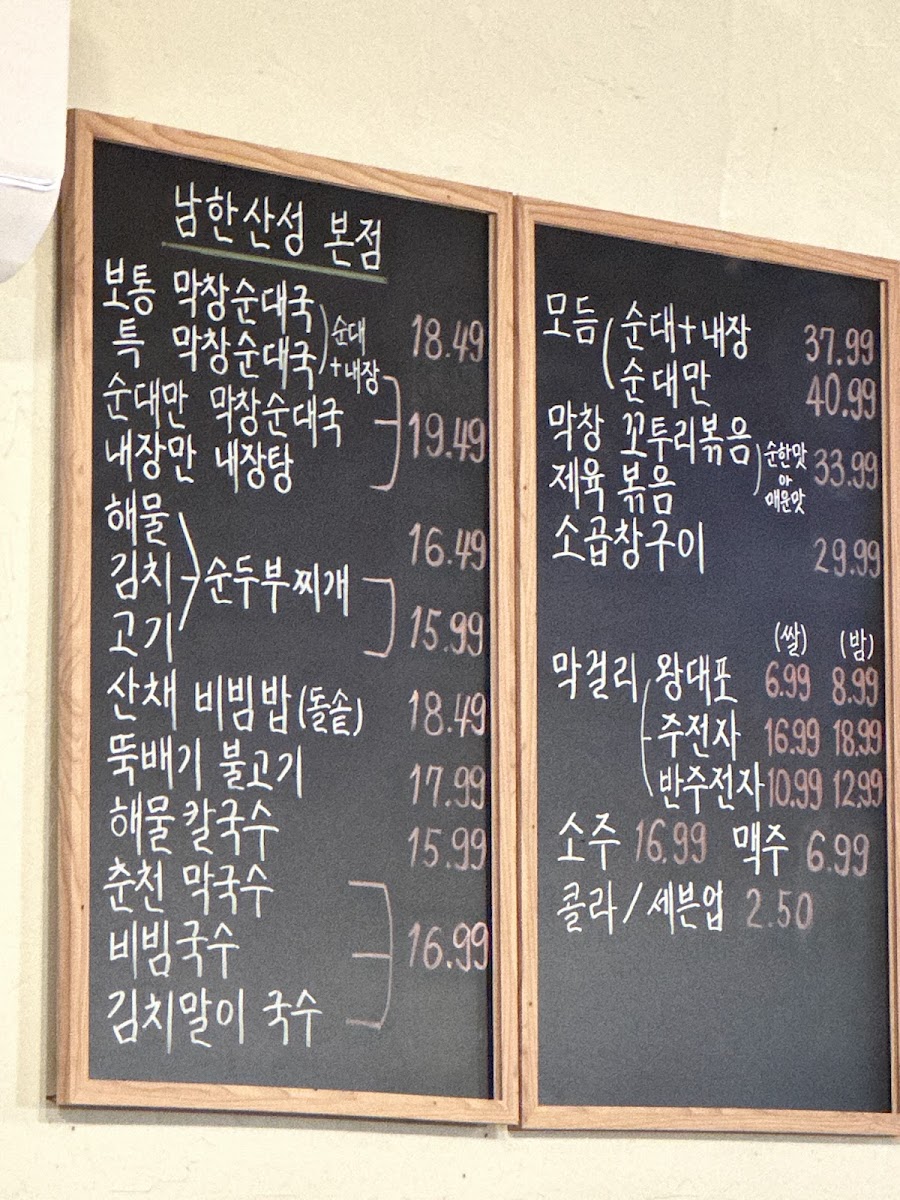 남한산성 본점
보통 막창순대국
특 막창순대국
순대
+내장
18.49
순대만 막창순대국
내장만 내장탕
19.49
해물
김치
고기
순두부찌개
16.49
15.99
산채 비빔밥(돌솥) 18.49
뚝배기 불고기 17.99
해물칼국수 15.99
춘천 막국수
비빔국수
김치말이 국수
16.99
모듬 ( 순대+내장 37.99
순대만 40.99
막창 꼬투리볶음
제육 볶음
순한맛
아
매운맛
33.99
소곱창구이 29.99
(쌀) (밤)
막걸리 왕대포 6.99 8.99
주전자 16.99 18.99
반주전자 10.99 12.99
소주 16.99 맥주 6.99
콜라/세븐업 2.50